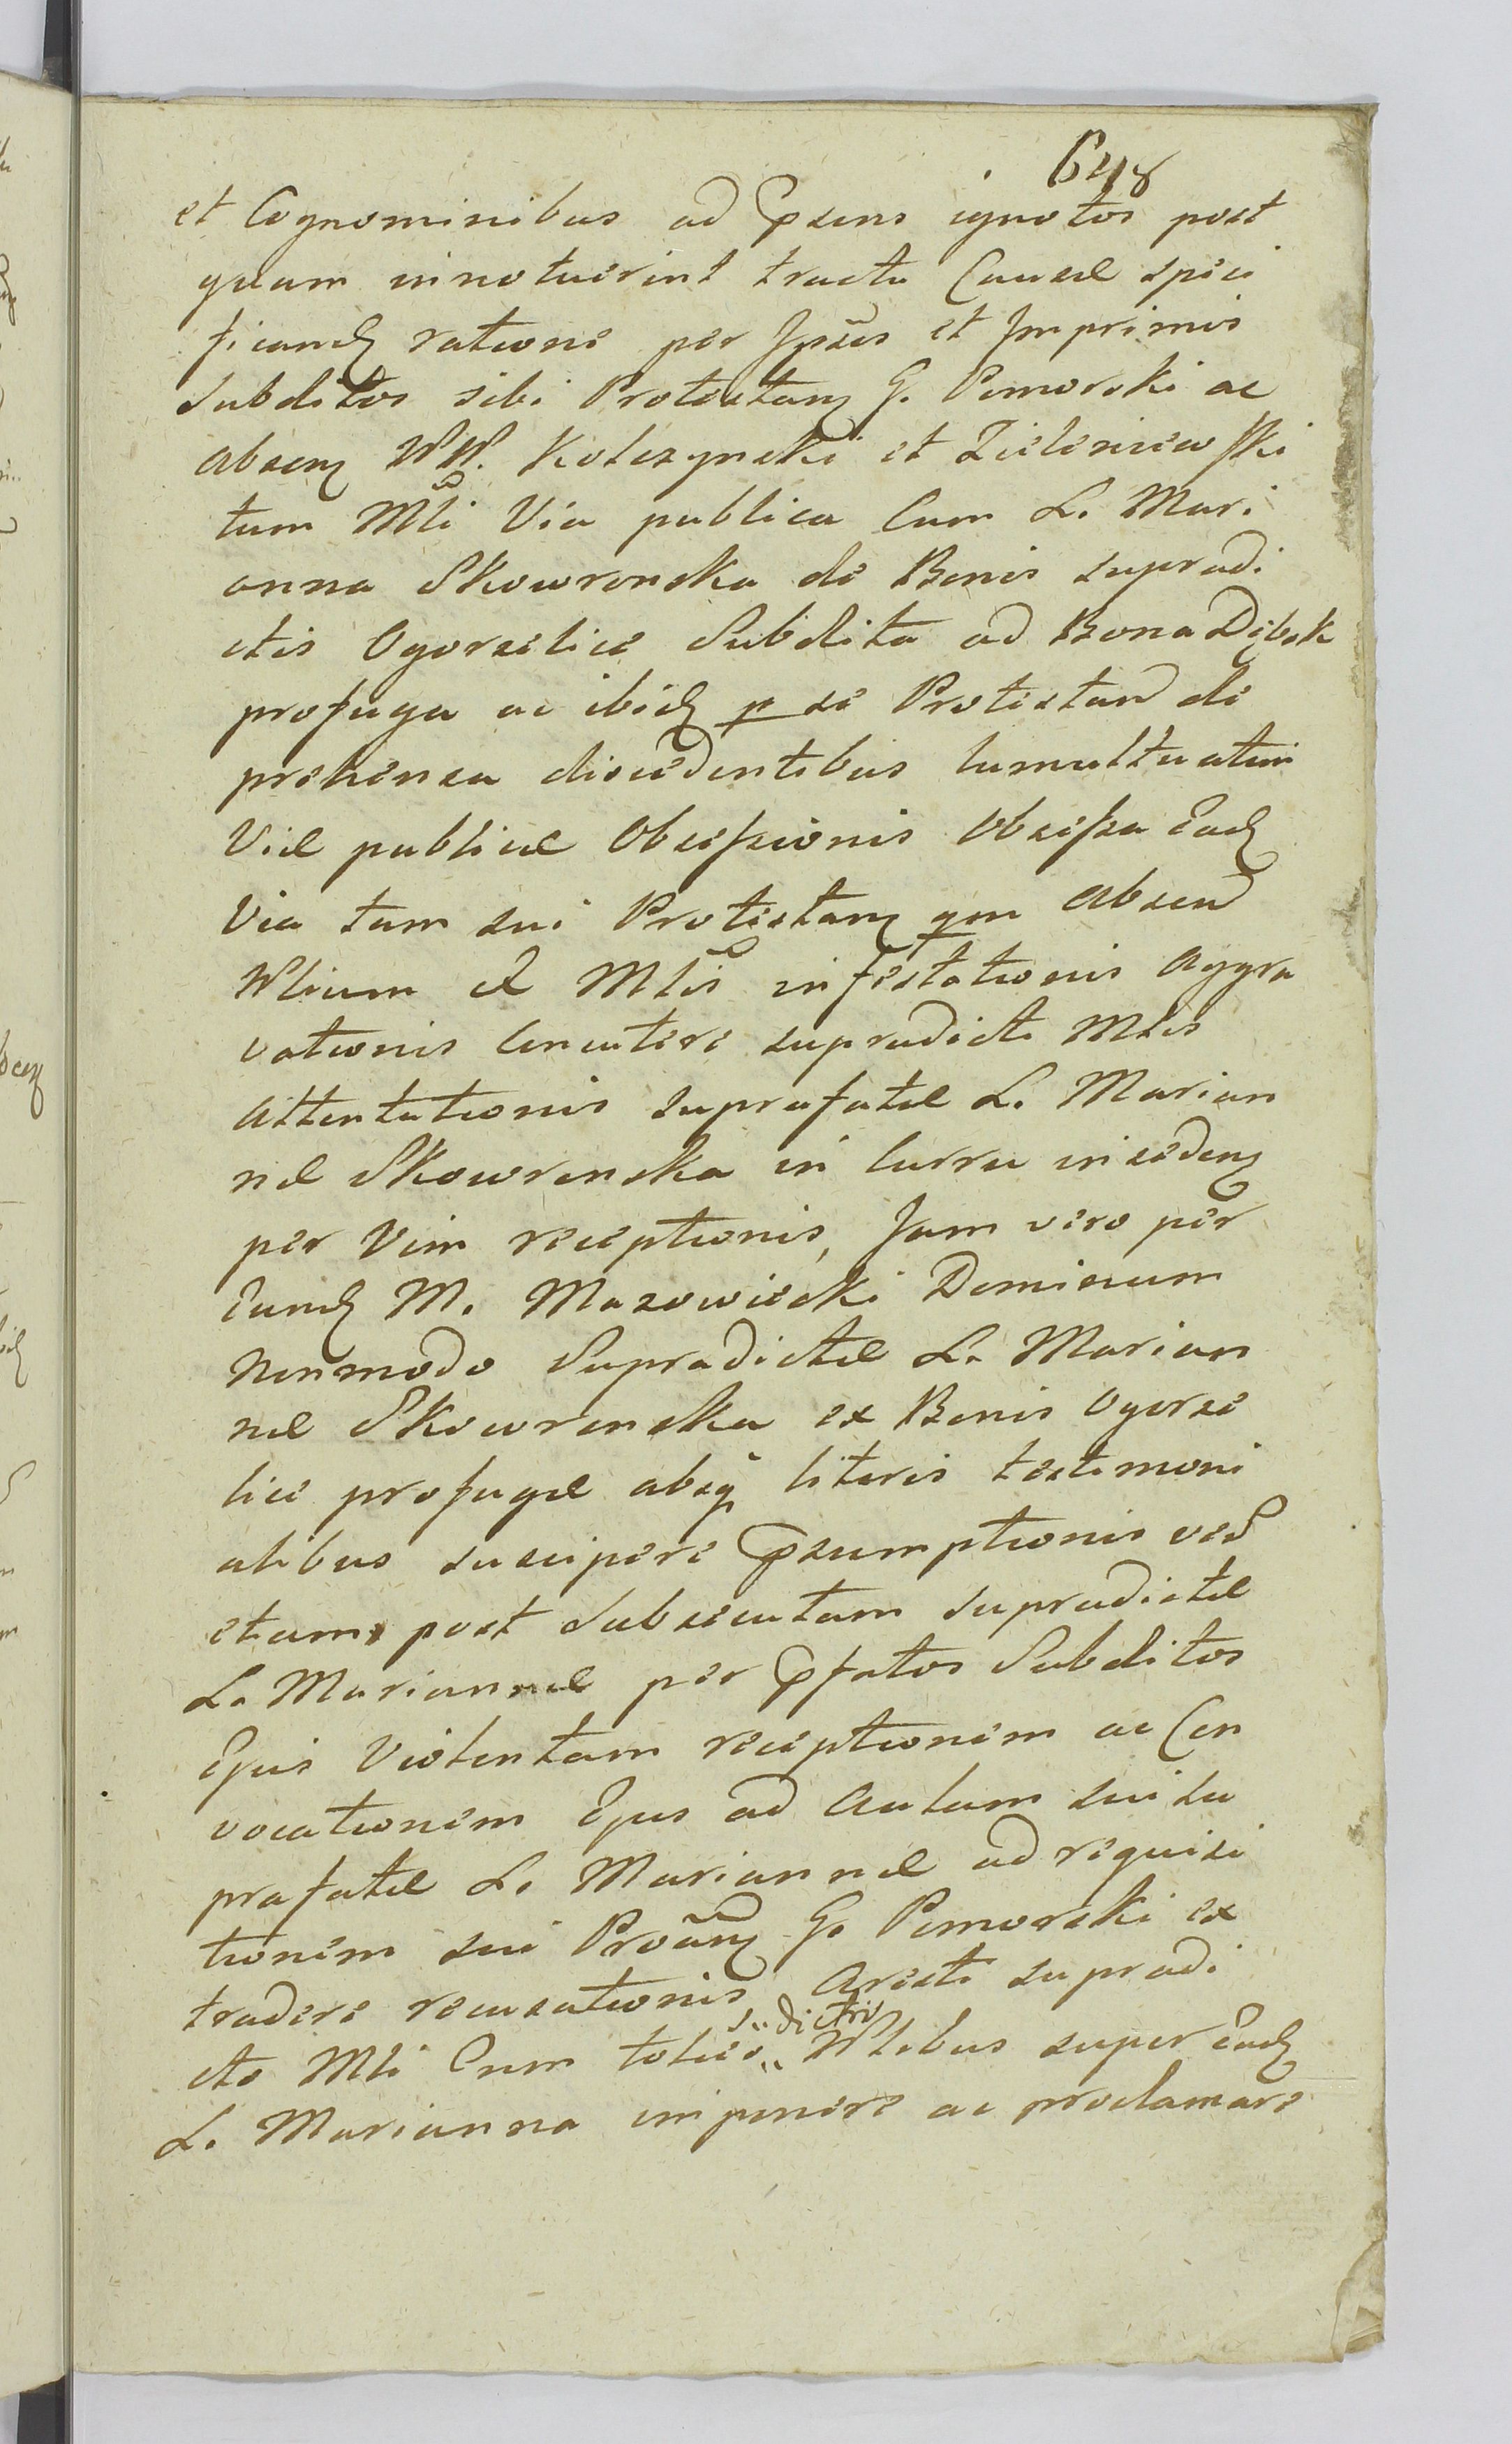 648
et Cognominibus ad Psens ignotos post
quam innotuerint tractu Causæ speci
ficand ratione per Ipsos et Imprimis
Subditos sibi Protestanz G. Pomorski ac
absenz WW. Kolczynski et Zieleniewski
tum Mli Via publica Cum L. Mari
anna Skowronska de Bonis supradi
ctis Ogorzelice Subdita ad Bona
profuga ac ibid p se Protestan de
prehensa discedentibus tumultuatim
Viæ publicæ Obsessionis Obsessa Ead
Via tum sui Protestanz qm absen
Wlium et Mlis infestationis Aggra
vationis Concutere supradicti Mlis
Attentationis suprafatæ L. Marian
næ Skowronska in Curru insedenz
per Vim receptionis, Jam vero per
Eund M. Mazowiecki Dominum
Nonmodo Supradictæ L. Marian
næ Skowronska ex Bonis Ogorze
lice profugæ absq literis testimoni
alibus suscipere Psumptionis ved
etiam post Subsecutam supradictæ
L. Mariannæ per Pfatos Subditos
Ejus Violentam receptionem ac Con
vocationem Ejus ad Aulam sui su
prafatæ L. Mariannæ ad requisi
tionem sui Proãnz G. Pomorski ex
tradere recusationis, Aresti supradi
cto Mli Cum toties Wlibus super Ead
L. Marianna imponere ac proclamare